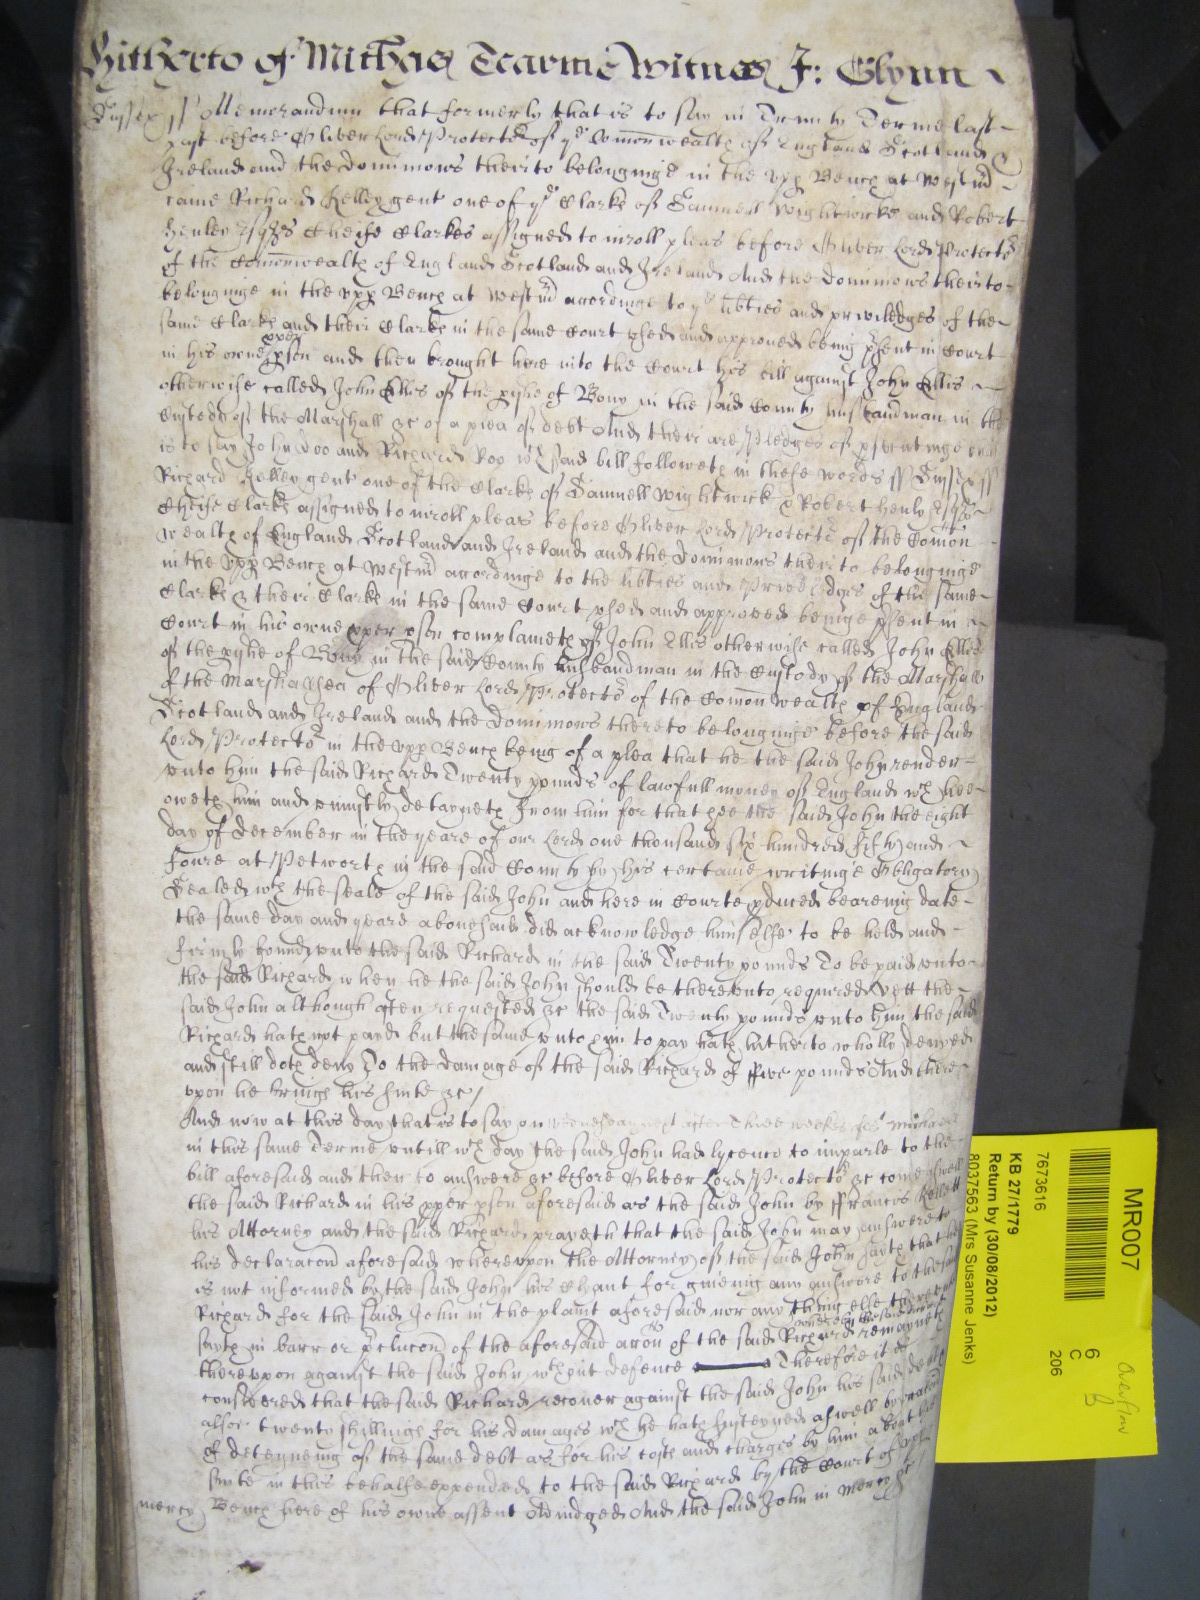 Hitherto of Michas Tearme Witnes J: Glynn
Sussex ss Memorandum that formerly that is to say in Trinity Terme last
past before Oliver Lord Protector of ye Comonwealth of England Scotland &
Ireland and the Dominions thereto belonginge in the Upp Bench at Westm
came Richard Kelley gent one of ye Clarks of Samuell Wightwicke and Robert
Henley Esqrs Cheife Clarkes assigned to inroll pleas before Oliver Lord Protector
of the Comonwealth of England Scotland and Ireland And the Dominions thereto
belonginge in the Upp Bench at Westm accordinge to ye libties and priviledges of the
same Clarks and their Clarks in the same Court used and approved being psent in Court
in his owne pper pson and then brought here into the Court his bill against John Ellis
otherwise called John Ellis of the pishe of Bury in the said County husbandman in the
Custody of the Marshall &c of a plea of debt And there are pledges of psecutinge
is to say John Doo and Richard Roo wch said bill followeth in these words ss Sussex ss
Richard Kelley gent one of the Clarks of Samuell Wightwick & Robert Henly Esqrs
Cheife Clarks assigned to inroll pleas before Oliver Lord Protector of the Comon
wealth of England Scotland and Ireland and the Dominions thereto belonginge
in the Upp Bench at Westm accordinge to the libties and Priviledges of the same
Clarks & their Clarks in the same Court used and approved beinge psent in
Court in his owne pper pson complaineth of John Ellis otherwise called John Ellis
of the pishe of Bury in the said County husbandman in the Custody of the Marshall
of the Marshalsea of Oliver Lord Protector of the Comonwealth of England
Scotland and Ireland and the Dominions thereto belonginge before the said
Lord Protector in the Upp Bench being of a plea that he the said John render
unto him the said Richard Twenty pounds of lawfull money of England wch hee
oweth him and uniustly detayneth From him for that hee the said John the eight
day of December in the yeare of our Lord one thousand six hundred fifty and
foure at Petworth in the said County by his certaine writinge Obligatory
Sealed wth the seale of the said John and here in Courte pduced beareing date
the same day and yeare abovesaid did acknowledge himselfe to be held and
firmly bound unto the said Richard in the said Twenty pounds To be paid unto
the said Richard when he the said John should be thereunto required Yett the
said John although often requested &c the said Twenty pounds unto him the said
Richard hath not payd but the same unto him to pay hath hitherto wholly denyed
and still doth deny To the damage of the said Richard of ffive pounds And there
upon he brings his suite &c
And now at this day that is to say on Wednesday next after Three weekes of St Michaell
in this same Terme untill wch day the said John had lycence to imparle to the
bill aforesaid and then to answere &c before Oliver Lord Protector &c come aswell
the said Richard in his pper pson aforesaid as the said John by ffrancis Kellett
his Attorney and the said Richard prayeth that the said John may answere to
his declaracon aforesaid whereupon the Attorney of the said John sayth that he
is not informed by the said John his Clyant for giveing any answere to the said
Richard for the said John in the plaint aforesaid nor any thing else
sayth in barr or pclucon of the aforesaid accon of the said Richard whereby the said Richard remayneth
thereupon against the said John wthout defence Therefore it is
considered that the said Richard recover against the said John his said debt
alsoe twenty shillings for his damages wch he hath susteyned aswell by reason
of deteyneing of the same debt as for his costs and charges by him about his
suite in this behalfe expended to the said Richard by the Court of Upp
mercy Bench here of his owne assent Adiudged And the said John in Mercy &c
MR007
6
C
206
7673616
KB 27/1779
Return by (30/08/2012)
8037563 (Mrs Susanne Jenks)